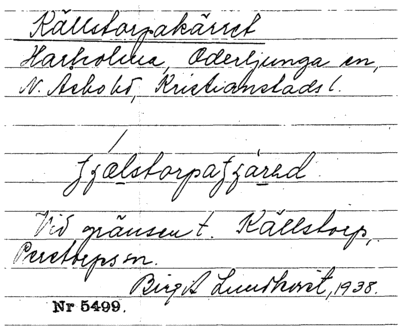 Källstorpakärret
Harholma, Oderljunga sn,
N. Åsbo hd, Kristianstads l.
ʃʃælstorpaʃʃäred
Vid gränsen t. Källstorp,
Perstorps sn.
Birgit Lundkvist, 1938.
Nr 5499.